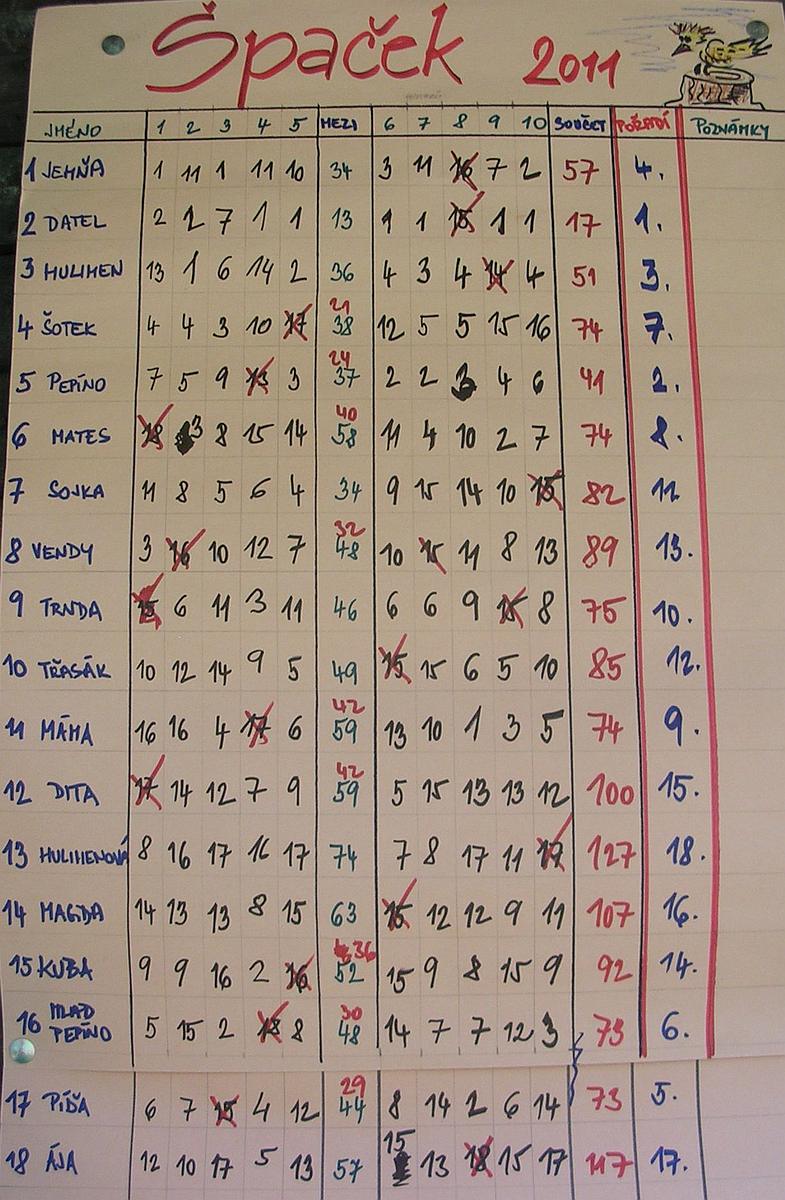 Špaček 2011
JMÉNO 1 2 3 4 5 MEZI 6 7 8 9 10 SOUČET POŘADÍ POZNÁMKY
1 JEHŇA 1 11 1 11 10 34 3 11 16 7 2 57 4.
2 DATEL 2 2 7 1 1 13 1 1 15 1 1 17 1.
3 HULIHEN 13 1 6 14 2 36 4 3 4 14 4 51 3.
21
4 ŠOTEK 4 4 3 10 17 38 12 5 5 15 16 74 7.
24
5 PEPÍNO 7 5 9 13 3 37 2 2 3 4 6 41 2.
40
6 MATES 18 3 8 15 14 58 11 4 10 2 7 74 8.
7 SOJKA 11 8 5 6 4 34 9 15 14 10 15 82 11
32
8 VENDY 3 16 10 12 7 48 10 15 11 8 13 89 13.
9 TRNDA 15 6 11 3 11 46 6 6 9 15 8 75 10.
10 TŘASÁK 10 12 14 9 5 49 15 15 6 5 10 85 12.
42
11 MÁHA 16 16 4 17 6 59 13 10 1 3 5 74 9.
42
12 DITA 17 14 12 7 9 59 5 15 13 13 12 100 15.
13 HULIHENOVÁ 8 16 17 16 17 74 7 8 17 11 17 127 18.
14 MAGDA 14 13 13 8 15 63 15 12 12 9 11 107 16.
36
15 KUBA 9 9 16 2 16 52 15 9 8 15 9 92 14.
30
16 MLAD PEPÍNO 5 15 2 18 8 48 14 7 7 12 3 73 6.
29
17 PÍĎA 6 7 15 4 12 44 8 14 2 6 14 73 5.
15
18 ÁJA 12 10 17 5 13 57 13 18 15 17 117 17.